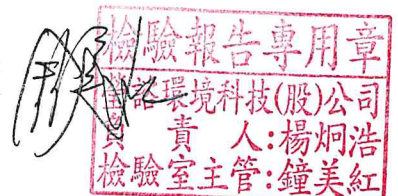 檢驗報告專用章
環境科技(股)公司
負責人:楊炯浩
檢驗室主管:鐘美紅